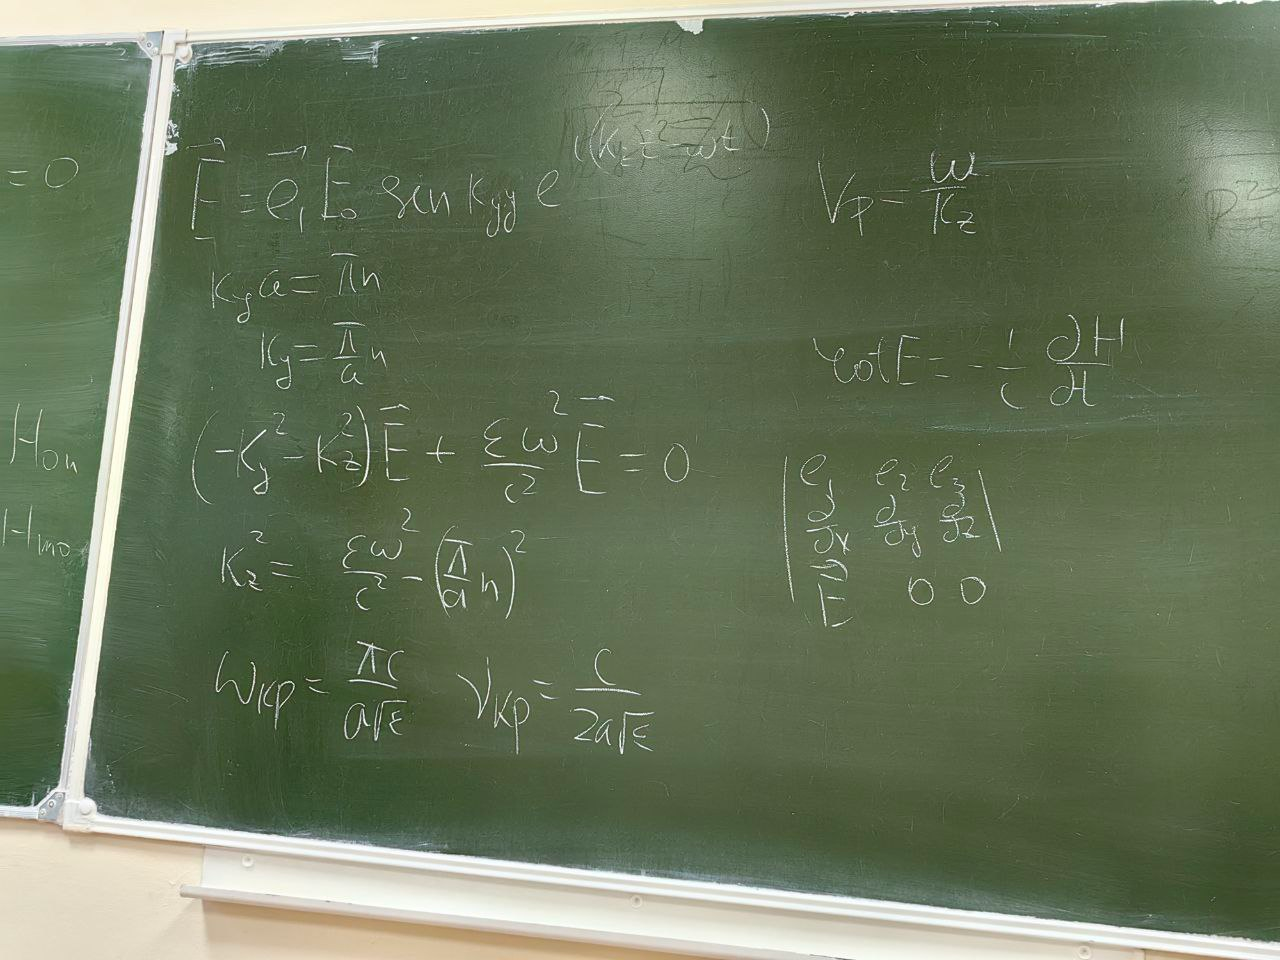 = 0
H₀ₙ
Hₘ₀
E⃗ = e⃗₁ E₀ sin kᵧy e^{i(k_z z − ωt)}
kᵧa = πn
kᵧ = π/a n
(−kᵧ² − k_z²) E⃗ + εω²/c² E⃗ = 0
k_z² = εω²/c² − (π/a n)²
ω_кр = πc/a√ε ν_кр = c/2a√ε
V_р = ω/k_z
rot E = − 1/c ∂H/∂t
| e₁ e₂ e₃ |
| ∂/∂x ∂/∂y ∂/∂z |
| E⃗ 0 0 |